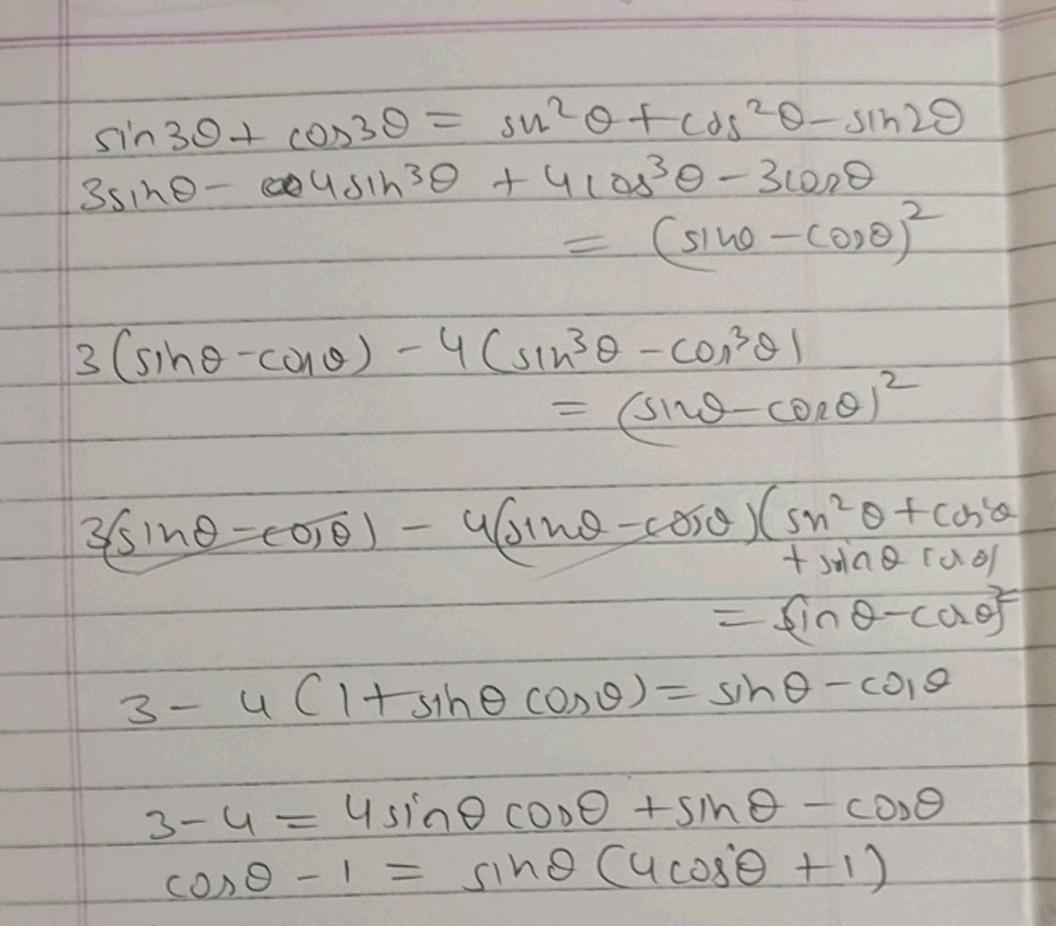 sin3θ + cos3θ = sin²θ + cos²θ - sin2θ
3sinθ - 4sin³θ + 4cos³θ - 3cosθ
= (sinθ - cosθ)²
3(sinθ - cosθ) - 4(sin³θ - cos³θ)
= (sinθ - cosθ)²
3(sinθ - cosθ) - 4(sinθ - cosθ)(sin²θ + cos²θ
+ sinθ cosθ)
= (sinθ - cosθ)²
3 - 4(1 + sinθ cosθ) = sinθ - cosθ
3 - 4 = 4sinθ cosθ + sinθ - cosθ
cosθ - 1 = sinθ (4cosθ + 1)